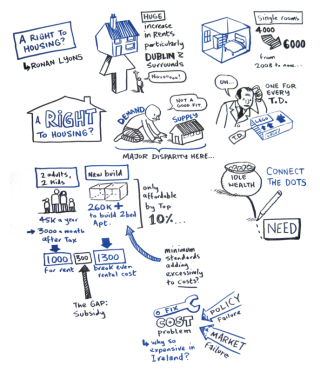 A RIGHT TO
HOUSING?
RONAN LYONS
HUGE
increase
in Rents
particularly
DUBLIN &
Surrounds
Single rooms
4000
6000
from
2008 to now...
A RIGHT
TO HOUSING?
DEMAND
NOT A
GOOD FIT.
SUPPLY
MAJOR DISPARITY HERE...
UH...
ONE FOR
EVERY
T.D.
2 adults,
2 Kids
45K a year
3000 a month
after Tax
New build
260K +
to build 2bed
Apt.
only
affordable
by Top
10%...
1000
300
1300
for rent
break even
rental cost
THE GAP:
Subsidy
minimum
standards
adding
excessively
to costs?
IDLE
WEALTH
CONNECT
THE DOTS
NEED
FIX
COST
problem
why so
expensive in
Ireland?
POLICY
Failure
MARKET
Failure